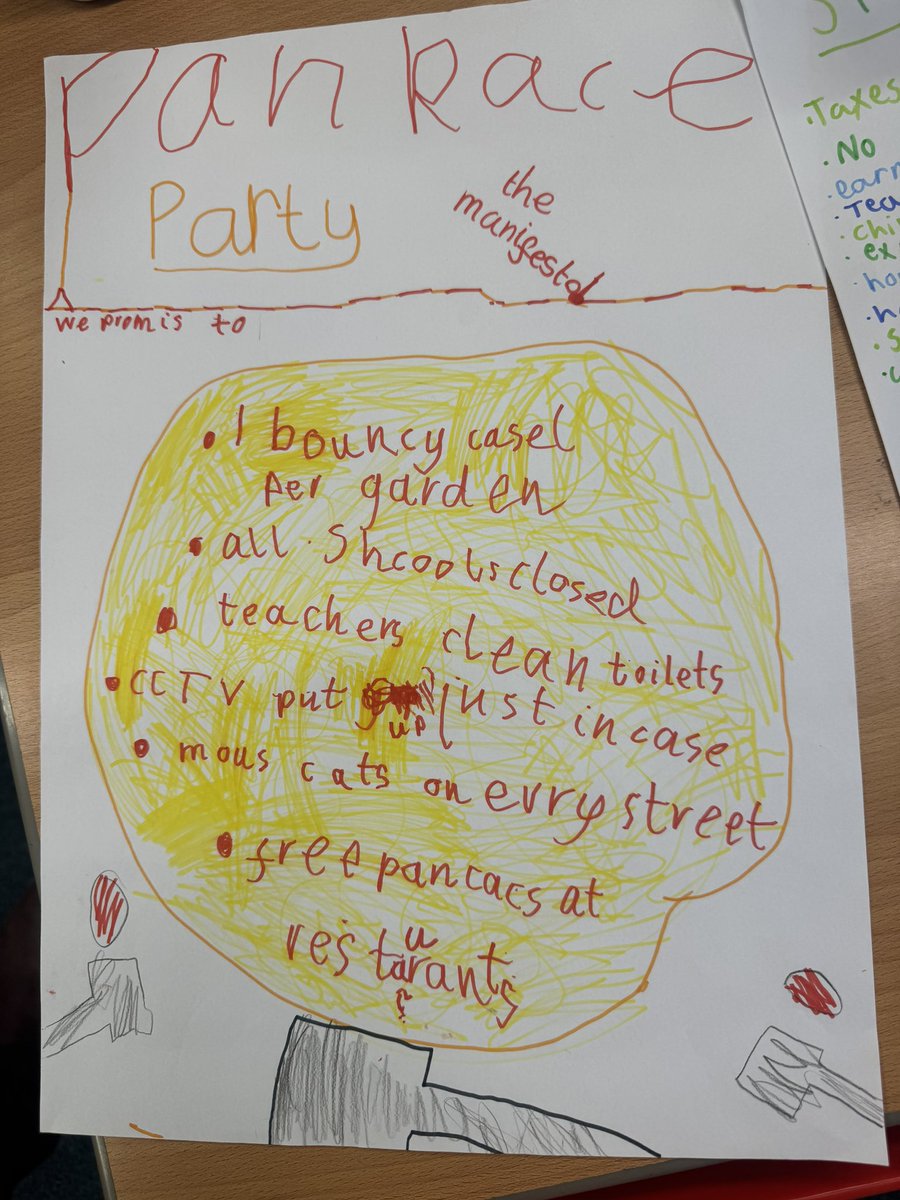 Pan Race
Party
the
manifesto
we promis to
• 1 bouncy casel
per garden
• all Shcools closed
• teachers clean toilets
• CCTV put up just in case
• mous cats on evry street
• free pancacs at
restuarants
.Taxes
.No
.earn